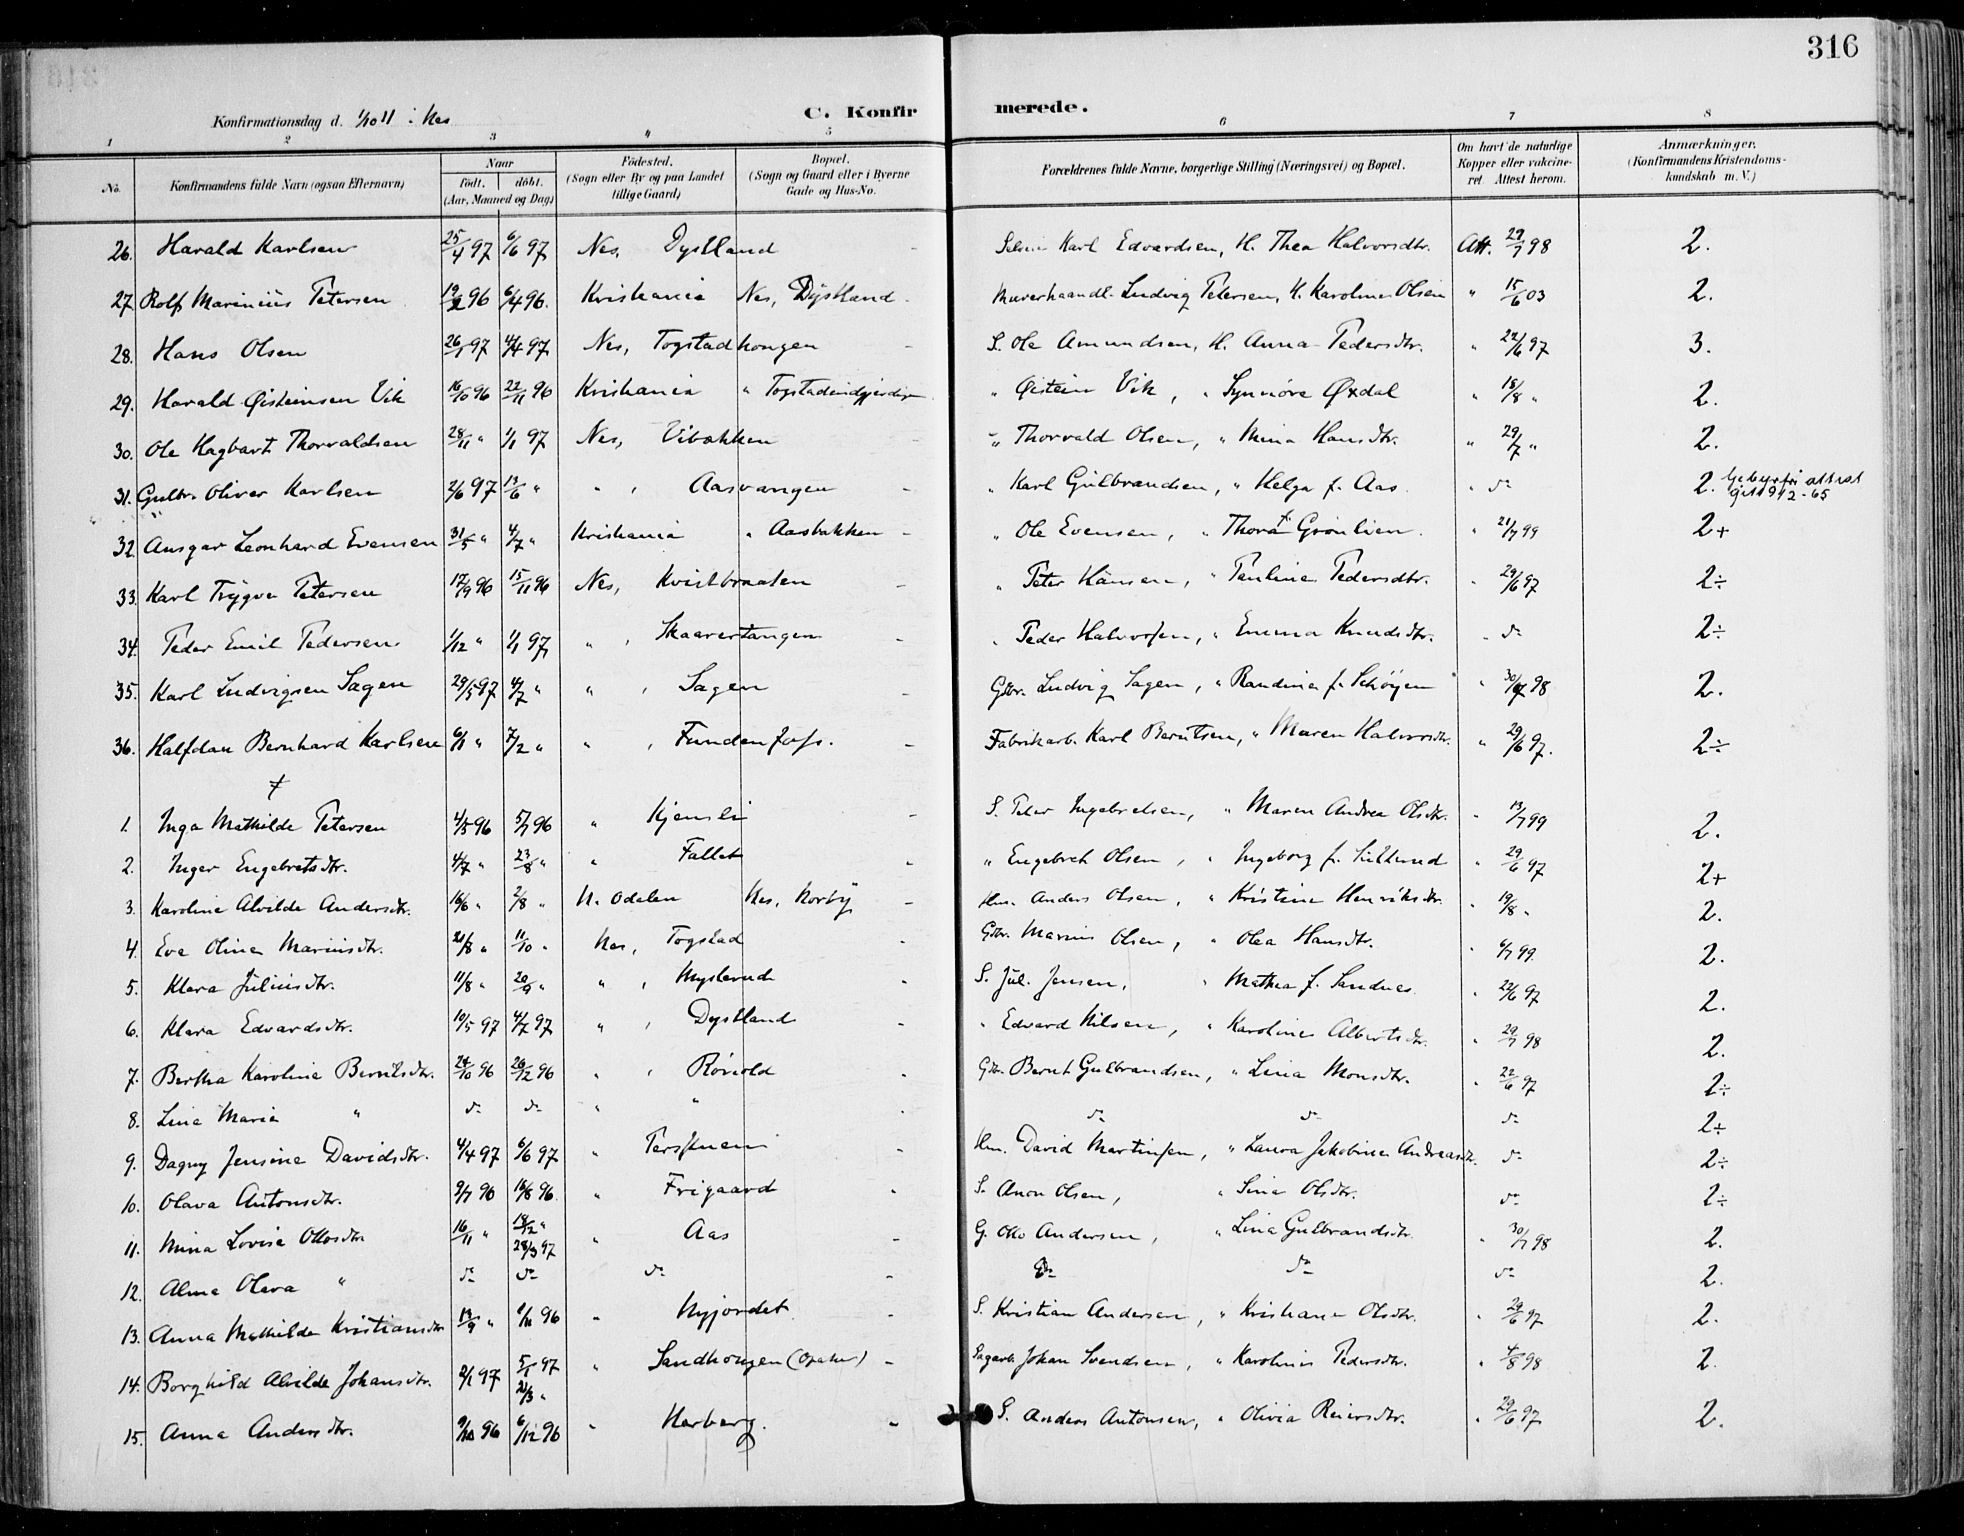 316
Konfirmationsdag d. 1/10 11 i Nes C. Konfirmerede.
1 2 3 4 5 6 7 8
No. Konfirmandens fulde Navn (ogsaa Efternavn) Naar født. døbt. (Aar, Maaned og Dag) Fødested. (Sogn eller By og paa Landet tillige Gaard) Bopæl. (Sogn og Gaard eller i Byerne Gade og Hus-No. Forældrenes fulde Navne, borgerlige Stilling (Næringsvei) og Bopæl. Om havt de naturlige Kopper eller vakcineret. Attest herom. Anmærkninger. (Konfirmandens Kristendomskundskab m. V.)
26. Harald Karlsen 25/4 97 6/6 97 Nes, Dystland - Karl Edvardsen, H. Thea Halvorsdtr. Att. 29/7 98 2.
27. Rolf Marinius Petersen 19/2 96 6/4 96. Kristiania Nes, Dystland - Murerhaandl. Ludvig Petersen, H. Karoline Olsen " 15/6 03 2.
28. Hans Olsen 26/1 97 4/4 97 Nes, Togstadhougen - S. Ole Amundsen, H. Anna Pedersdtr. " 22/6 97 3.
29. Harald Øisteinsen Vik 16/10 96 22/11 96 Kristiania " - " Øistein Vik, " Synnöve Øxdal " 18/8 " 2.
30. Ole Hagbart Thorvaldsen 28/11 " 1/1 97 Nes, Vibakken - " Thorvald Olsen, " Mina Hansdtr. " 29/7 " 2.
31. Gulbr. Oliver Karlsen 2/6 97 13/6 " " , Aasvangen - " Karl Gulbrandsen, " Helga f. Aas " do 2. Gebyrfri attest gitt 9/12-65
32. Ansgar Leonhard Evensen 31/5 " 4/7 " Kristiania " Aasbakken - " Ole Evensen, " Thora f. Grönlien " 21/7 99 2+
33. Karl Trygve Petersen 17/9 96 15/11 96 Nes, Kvistbraaten - " Peter Hansen, " Pauline Pedersdtr. " 29/6 97 2÷
34. Peder Emil Pedersen 1/12 " 1/1 97 " , Skaarertangen - " Peder Halvorsen, " Emma Knudsdtr. " do 2÷
35. Karl Ludvigsen Sagen 29/5 97 4/7 " " , Sagen - Gbr. Ludvig Sagen, " Randine f. Schøyen " 30/7 98 2.
36. Halfdan Bernhard Karlsen 6/1 " 7/2 " " , Fundenfoss. - Fabrikarb. Karl Berntsen, " Maren Halvorsdtr. " 29/6 97. 2÷
1. Inga Mathilde Petersen 4/5 96 5/7 96 " Kjemsli - S. Peter Ingebretsen, " Maren Andrea Olsdtr. " 13/7 99 2.
2. Inger Engebretsdtr. 4/7 " 23/8 " " Fallet - " Engebret Olsen, " Ingeborg f. " 29/6 97 2+
3. Karoline Alvilde Andersdtr. 16/6 " 2/8 " N. Odalen Nes, Norby - Hm. Anders Olsen, " Kristine Henriksdtr. " 19/8 " 2.
4. Eva Oline Mariusdtr. 21/8 " 11/10 " Nes, Togstad - Gbr. Marius Olsen, " Olea Hansdtr. " 6/7 99 2.
5. Klara Juliusdtr. 11/8 " 20/9 " " , Myslerud - S. Jul. Jensen, " Mathea f. Sandnes " 22/6 97 2.
6. Klara Edvardsdtr. 10/5 97 4/7 97 " , Dystland - " Edvard Nilsen, " Karoline Albertsdtr. " 29/7 98 2.
7. Bertha Karoline Berntsdtr. 24/10 96 26/12 96 " , Rönold - Gbr. Bernt Gulbrandsen, " Lina Monsdtr. " 22/6 97 2÷
8. Lina Maria " do do " " - do do do 2+
9. Dagny Jensine Davidsdtr. 4/4 97 6/6 97 " - Hm. David Martinsen, " Laura Jakobine Andreasdtr. do 2÷
10. Olava Antonsdtr. 9/7 96 16/8 96. " Frigaard - S. Anon Olsen, " Sina Olsdtr. do 2÷
11. Mina Lovise Ottosdtr. 16/11 " 18/12 " 28/3 97 " Aas - G. Otto Andersen, " Lina Gulbrandsdtr. " 30/7 98 2.
12. Alma Olava " do do do - do do do 2.
13. Anna Mathilde Kristiansdtr. 13/9 " 1/11 96 " Nyjordet - S. Kristian Andersen, " Kristiane Olsdtr. " 29/6 97 2.
14. Borghild Alvilde Johansdtr. 2/1 97 5/1 97 21/3 " " Sandhougen (Opaker) - Sagarb. Johan Svendsen, " Karoline Pedersdtr. " 4/8 98 2.
15. Anna Andersdtr. 9/10 96 6/12 96 " Herberg. - S. Anders Antonsen, " Olivia Reiersdtr. " 29/6 97 2.